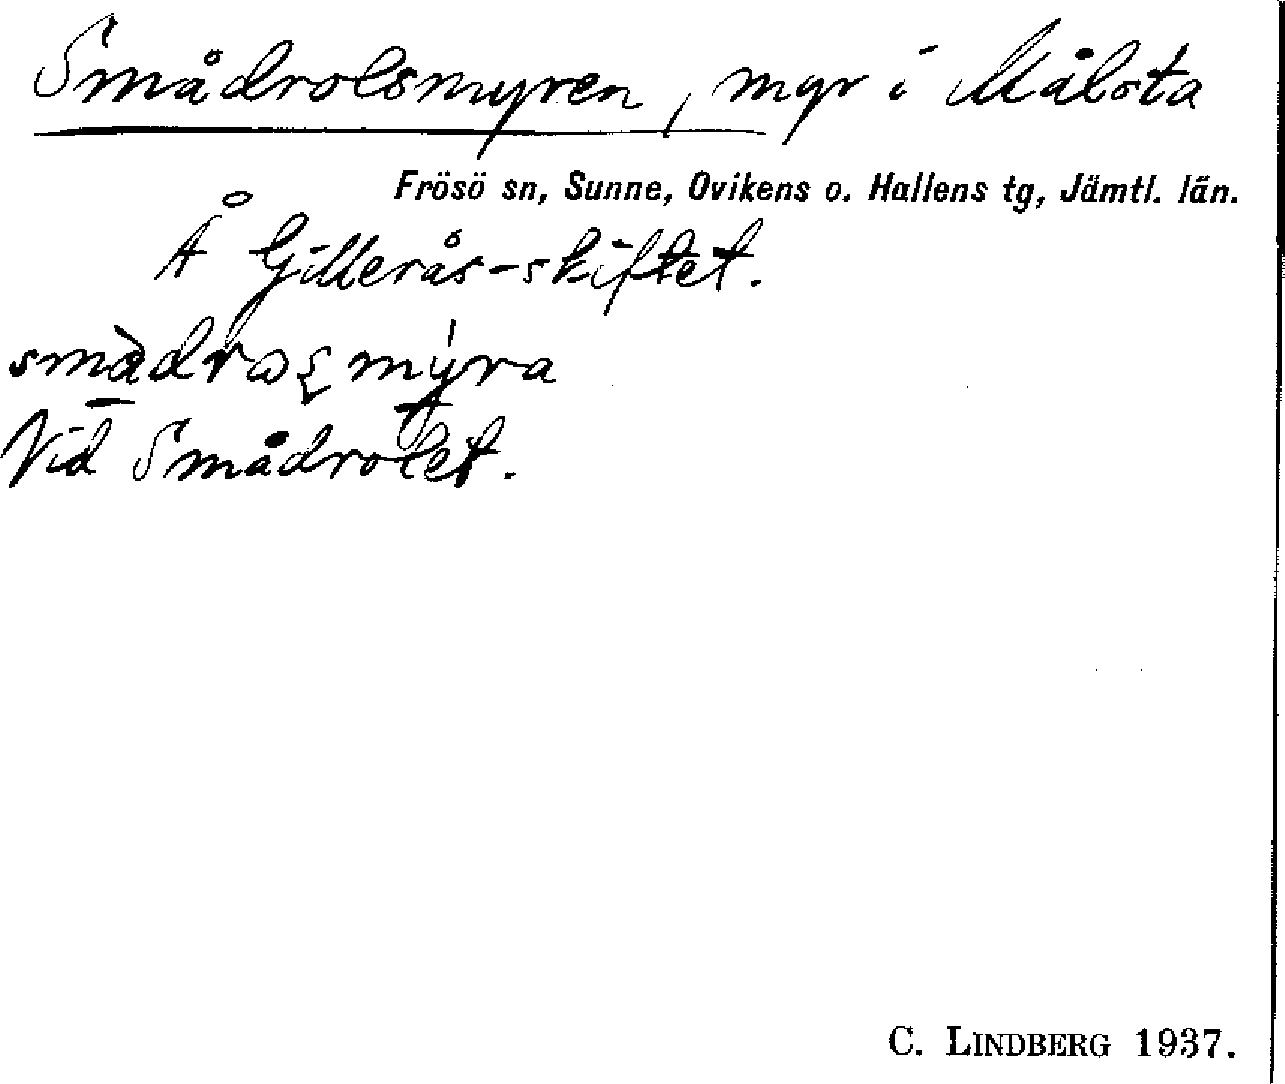 Smådrolsmyren, myr i Målsta
Frösö sn, Sunne, Ovikens o. Hallens tg, Jämtl. län.
Å Gillerås-skiftet.
Vid Smådrolet.
C. LINDBERG 1937.